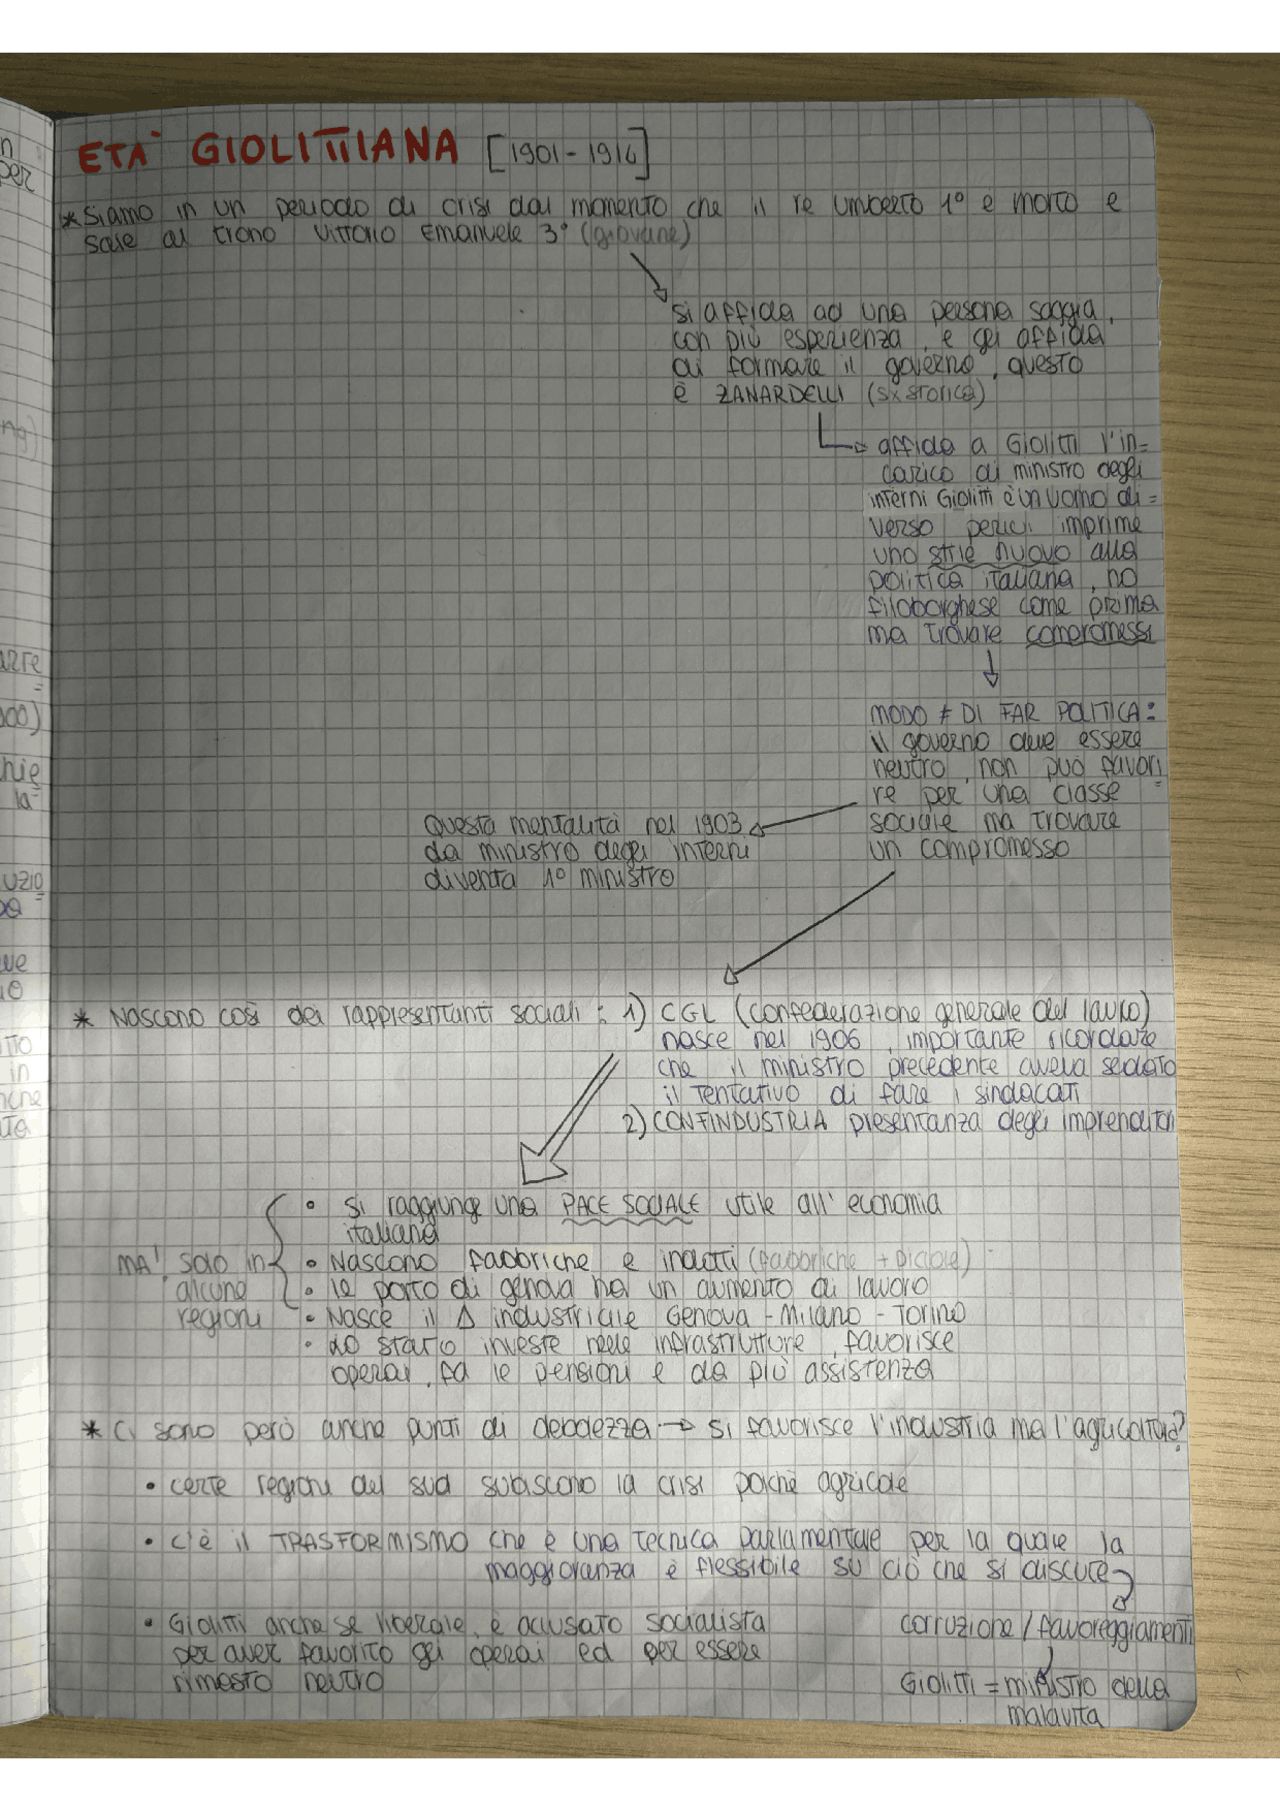 ETÀ GIOLITTIANA [1901-1914]
* Siamo in un periodo di crisi dal momento che il re Umberto 1° è morto e
sale al trono Vittorio Emanuele 3° (giovane)
si affida ad una persona saggia,
con più esperienza, e gli affida
di formare il governo, questo
è ZANARDELLI (sx storica)
affida a Giolitti l'in=
carico di ministro degli
interni Giolitti è un uomo di=
verso perché imprime
uno stile nuovo alla
politica italiana, no
filoborghese come prima
ma trovare compromessi
MODO ≠ DI FAR POLITICA:
il governo deve essere
neutro, non può favori=
re per una classe
sociale ma trovare
un compromesso
Questa mentalità nel 1903
da ministro degli interni
diventa 1° ministro
* Nascono così dei rappresentanti sociali: 1) CGL (confederazione generale del lavoro)
nasce nel 1906, importante ricordare
che il ministro precedente aveva sedato
il tentativo di fare i sindacati
2) CONFINDUSTRIA presentanza degli imprenditori
• si raggiunge una PACE SOCIALE utile all'economia
italiana
MA! solo in
alcune
regioni
• Nascono fabbriche e indotti (fabbriche + piccole)
• le porto di genova ha un aumento di lavoro
• Nasce il Δ industriale Genova - Milano - Torino
• Lo stato investe nelle infrastrutture, favorisce
operai, fa le pensioni e da più assistenza
* Ci sono però anche punti di debolezza → si favorisce l'industria ma l'agricoltura?
• certe regioni del sud subiscono la crisi poiché agricole
• c'è il TRASFORMISMO che è una tecnica parlamentare per la quale la
maggioranza è flessibile su ciò che si discute
• Giolitti anche se liberale, è accusato socialista
per aver favorito gli operai ed per essere
rimasto neutro
corruzione / favoreggiamenti
Giolitti = ministro della
malavita